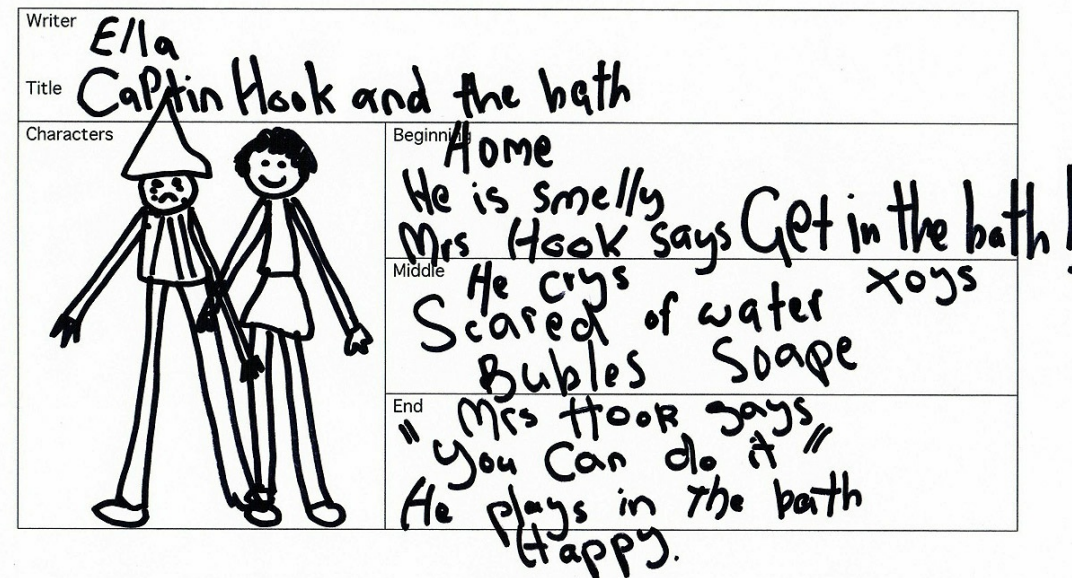 Writer
Ella
Title
Captin Hook and the bath
Characters
Beginning
Home
He is smelly
Mrs Hook says Get in the bath!
Middle
He crys
xoys
Scared of water
Bubles Soape
End
Mrs Hook says
"You Can do it"
He plays in The bath
Happy.